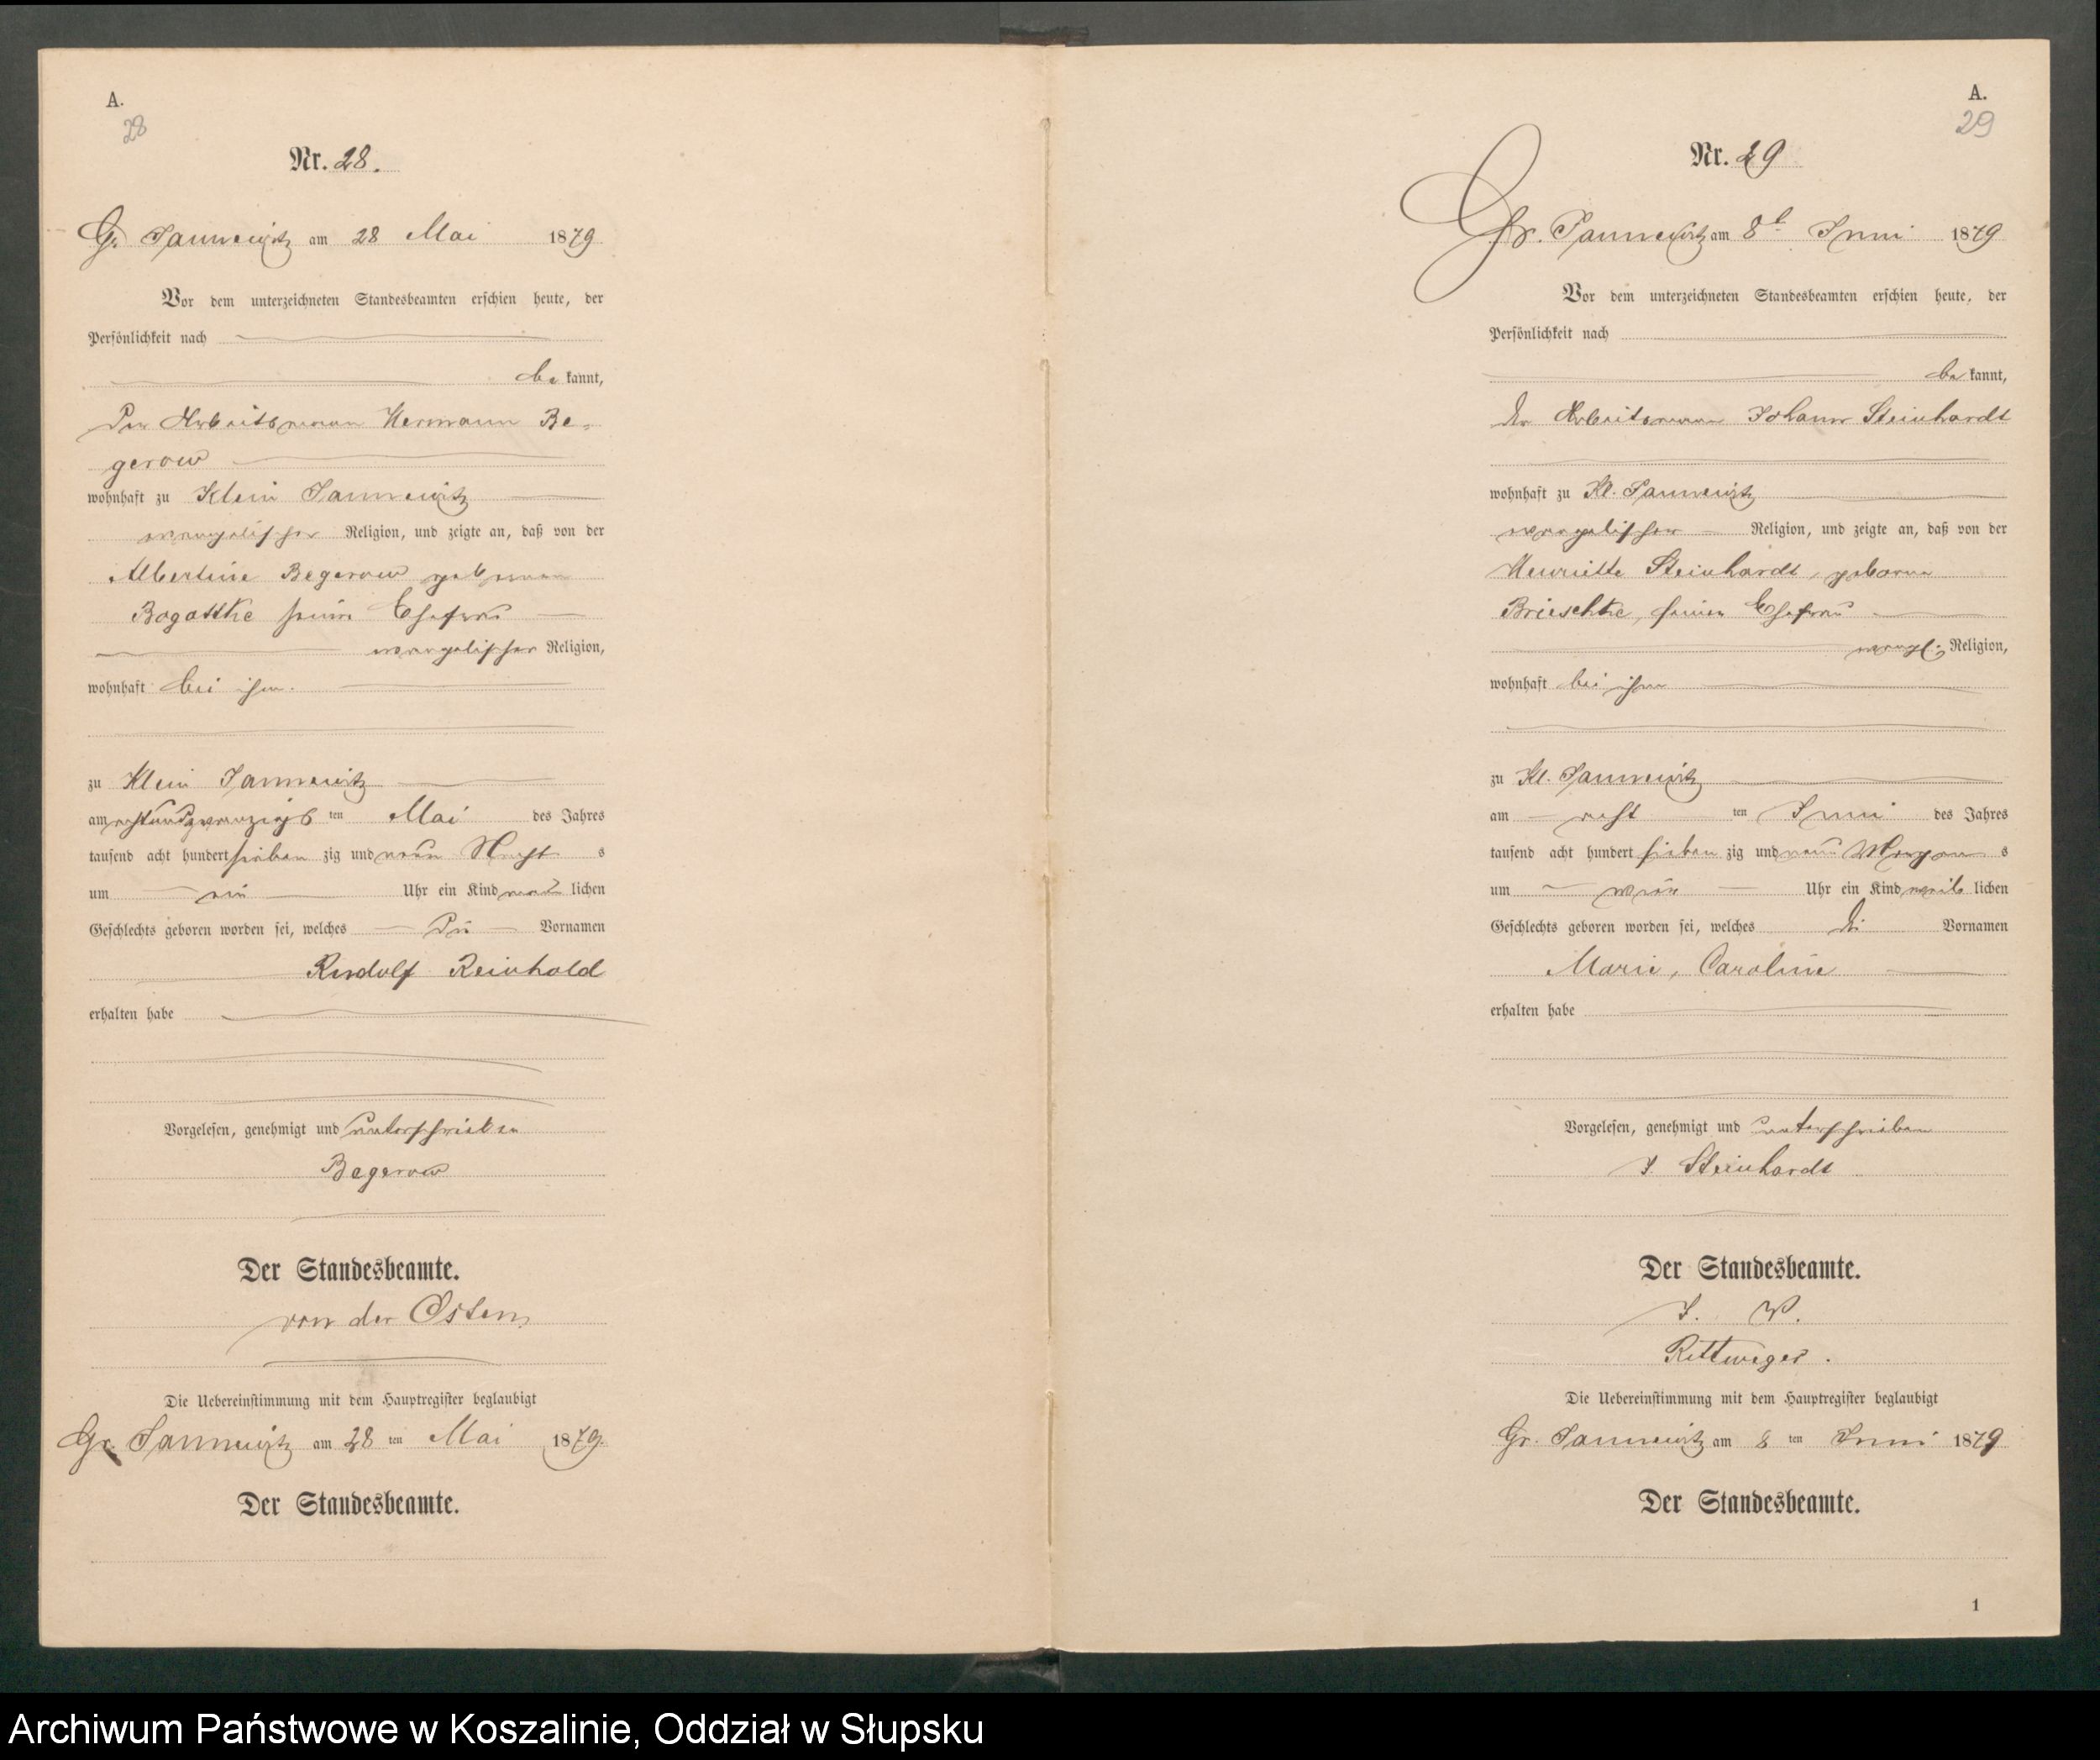 A.
28
Nr. 28.
Gr. Jannewitz am 28 Mai 1879.
Vor dem unterzeichneten Standesbeamten erschien heute, der
Persönlichkeit nach
be kannt,
Der Arbeitsmann Hermann Be-
gerow
wohnhaft zu Klein Jannewitz
evangelischer Religion, und zeigte an, daß von der
Albertine Begerow gebornen
Bogattke seine Ehefrau
evangelischer Religion,
wohnhaft bei ihm.
zu Klein Jannewitz
am achtundzwanzigs ten Mai des Jahres
tausend acht hundert sieben zig und neun Nacht s
um ein Uhr ein Kind männ lichen
Geschlechts geboren worden sei, welches die Vornamen
Rudolf Reinhold
erhalten habe
Vorgelesen, genehmigt und unterschrieben
Begerow
Der Standesbeamte.
von der Osten
Die Uebereinstimmung mit dem Hauptregister beglaubigt
Gr. Jannewitz am 28 ten Mai 1879.
Der Standesbeamte.
A.
29
Nr. 29
Gr. Jannewitz am 8t Juni 1879
Vor dem unterzeichneten Standesbeamten erschien heute, der
Persönlichkeit nach
be kannt,
der Arbeitsmann Johann Steinhardt
wohnhaft zu Kl. Jannewitz
evangelischer Religion, und zeigte an, daß von der
Henriette Steinhardt, geborne
Brieschke, seiner Ehefrau
evangl. Religion,
wohnhaft bei ihm
zu Kl. Jannewitz
am acht ten Juni des Jahres
tausend acht hundert sieben zig und neun Morgen s
um Uhr ein Kind weib lichen
Geschlechts geboren worden sei, welches die Vornamen
Marie, Caroline
erhalten habe
Vorgelesen, genehmigt und unterschrieben
J. Steinhardt
Der Standesbeamte.
J. V.
Rittweger.
Die Uebereinstimmung mit dem Hauptregister beglaubigt
Gr. Jannewitz am 8 ten Juni 1879
Der Standesbeamte.
1
Archiwum Państwowe w Koszalinie, Oddział w Słupsku